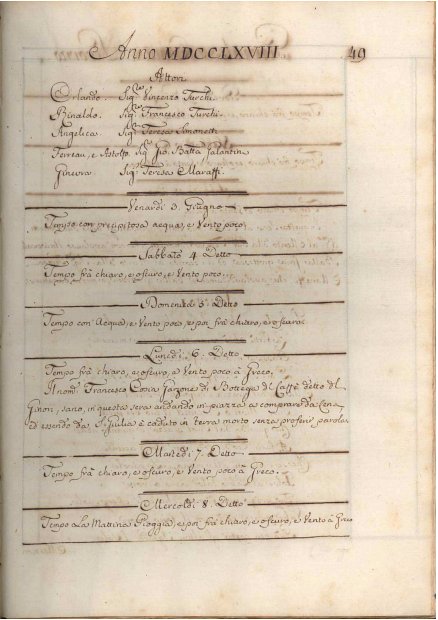 Anno MDCCLXVIII 49
Attori
Orlando. Sig.re Vincenzo Turchi.
Rinaldo. Sig.re Francesco Turchi.
Angelica. Sig.ra Teresa Simonetti
Ferrau, e Astolfo. Sig.re Gio. Batta Galantin
Ginevra Sig.ra Teresa Maraffi.
Venardi 3. Giugno
Tempo con precipitosa acqua, e Vento poco
Sabbato 4. Detto
Tempo frà chiaro, e oscuro, e Vento poco
Domenica 5. Detto
Tempo con Acqua, e Vento poco, e poi frà chiaro, e oscuro
Lunedi 6. Detto
Tempo frà chiaro, e oscuro, e Vento poco à Greco.
Il nom. Francesco Costa Garzone di Bottega del Caffè detto del
Ginori, sano, in questa sera andando in piazza a comprare da Cena
ed essendo da S. Giulia è caduto in terra morto senza proferir parola.
Martedi 7. Detto
Tempo frà chiaro, e oscuro, e Vento poco à Greco.
Mercoldi 8. Detto
Tempo La Mattina Pioggia, e poi frà chiaro, e oscuro, e Vento à Greco